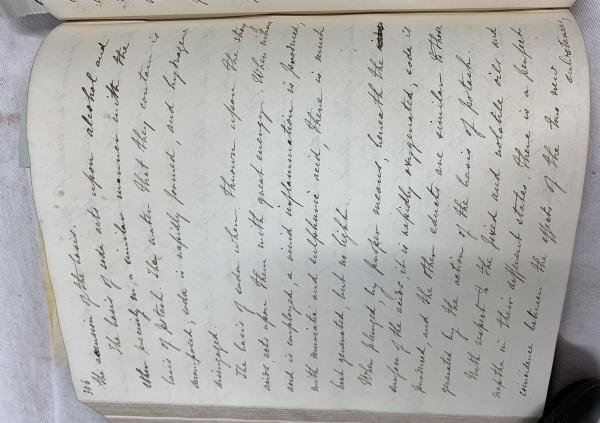 306
the accension of the basis.
The basis of soda acts upon alcohol and
ether precisely in a similar manner with the
basis of potash. The water that they contain is
decomposed; soda is rapidly formed, and hydrogene
disengaged.
The basis of soda when thrown upon the strong
acids, acts upon them with great energy. When nitrous
acid is employed, a vivid inflammation is produced,
with muriatic and sulphuric acid, there is much
heat generated, but no light.
When plunged, by proper means, beneath the
surface of the acids, it is rapidly oxygenated; soda is
produced, and the other educts are similar to those
generated by the action of the basis of potash.
With respect to the fixed and volatile oils and
naptha in their different states, there is a perfect
coincidence between the effects of the two new
substances,